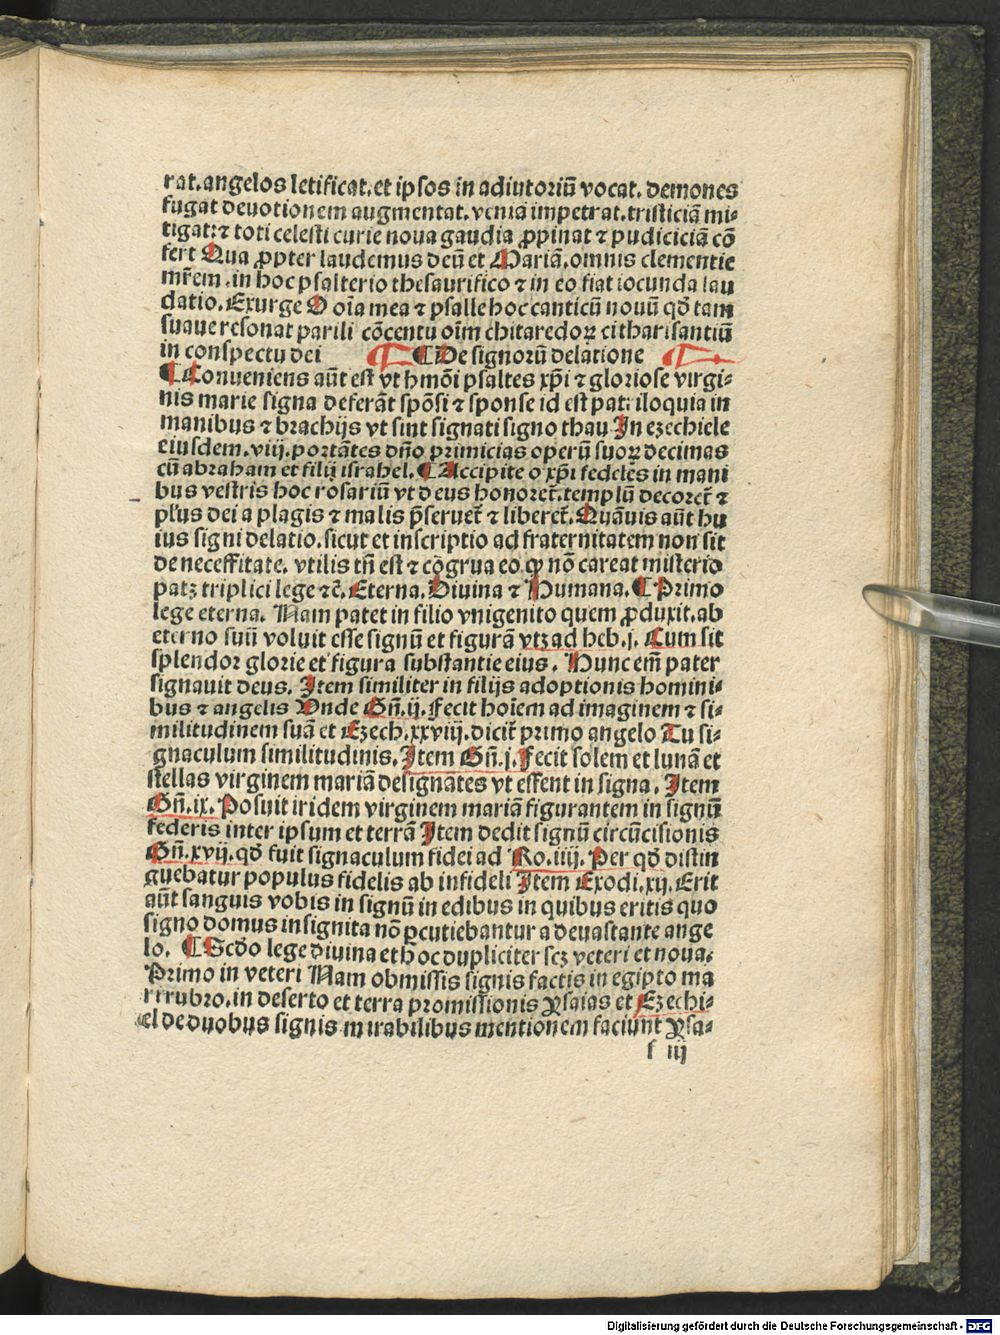 rat. angelos letificat. et ipsos in adiutoriū vocat. demones
fugat deuotionem augmentat. veniā impetrat. tristiciā mi⸗
tigat: ⁊ toti celesti curie noua gaudia ꝓpinat ⁊ pudiciciā cō
fert Qua ꝓpter laudemus deū et Mariā. omnis clementie
mr̄em. in hoc psalterio thesaurifico ⁊ in eo fiat iocunda lau
datio. Exurge O oīa mea ⁊ psalle hoc canticū nouū qd̄ tam
suaue resonat parili cōcentu oīm chitaredoꝝ citharisantiū
in conspectu dei ¶ De signorū delatione
¶ Conueniens aūt est vt hmōi psaltes xp̄i ⁊ gloriose virgi⸗
nis marie signa deferāt spōsi ⁊ sponse id est pat: iloquia in
manibus ⁊ brachijs vt sint signati signo thau In ezechiele
eiusdem. viij. portātes dn̄o primicias operū suoꝝ decimas
cū abraham et filij israhel. ¶ Accipite o xp̄i fedeles in mani
bus vestris hoc rosariū vt deus honoret̄. templū decoret̄ ⁊
pl's dei a plagis ⁊ malis p̄seruet̄ ⁊ liberet̄. Quāuis aūt hu
ius signi delatio. sicut et inscriptio ad fraternitatem non sit
de necessitate. vtilis tn̄ est ⁊ cōgrua eo ꝙ nō careat misterio
patꝫ triplici lege ⁊c̄. Eterna. Diuina ⁊ Humana. ¶ Primo
lege eterna. Nam patet in filio vnigenito quem ꝓduxit. ab
eterno suū voluit esse signū et figurā vtꝫ ad heb. j. Cum sit
splendor glorie et figura substantie eius. Hunc em̄ pater
signauit deus. Item similiter in filijs adoptionis homini⸗
bus ⁊ angelis Vnde Gn̄. ij. Fecit hoīem ad imaginem ⁊ si⸗
militudinem suā et Ezech. xxviij. dicit̄ primo angelo Tu si⸗
gnaculum similitudinis. Item Gn̄. j. Fecit solem et lunā et
stellas virginem mariā designātes vt essent in signa. Item
Gn̄. ix. Posuit iridem virginem mariā figurantem in signū
federis inter ipsum et terrā Item dedit signū circūcisionis
Gn̄. xvij. qd̄ fuit signaculum fidei ad Ro. iiij. Per qd̄ distin
guebatur populus fidelis ab infideli Item Exodi. xij. Erit
aūt sanguis vobis in signū in edibus in quibus eritis quo
signo domus insignita nō ꝑcutiebantur a deuastante ange
lo. ¶ Scd̄o lege diuina et hoc dupliciter scꝫ veteri et noua.
Primo in veteri Nam obmissis signis factis in egipto ma
ri rubro. in deserto et terra promissionis Ysaias et Ezechi⸗
el de duobus signis mirabilibus mentionem faciunt Ysa⸗
f iij
Digitalisierung gefördert durch die Deutsche Forschungsgemeinschaft - DFG